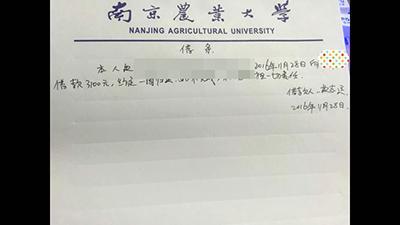 南京農業大學
NANJING AGRICULTURAL UNIVERSITY
借条
本人 2016年11月28日
借款3100元，约定一周归还 担一切责任
借款人
2016年11月28日